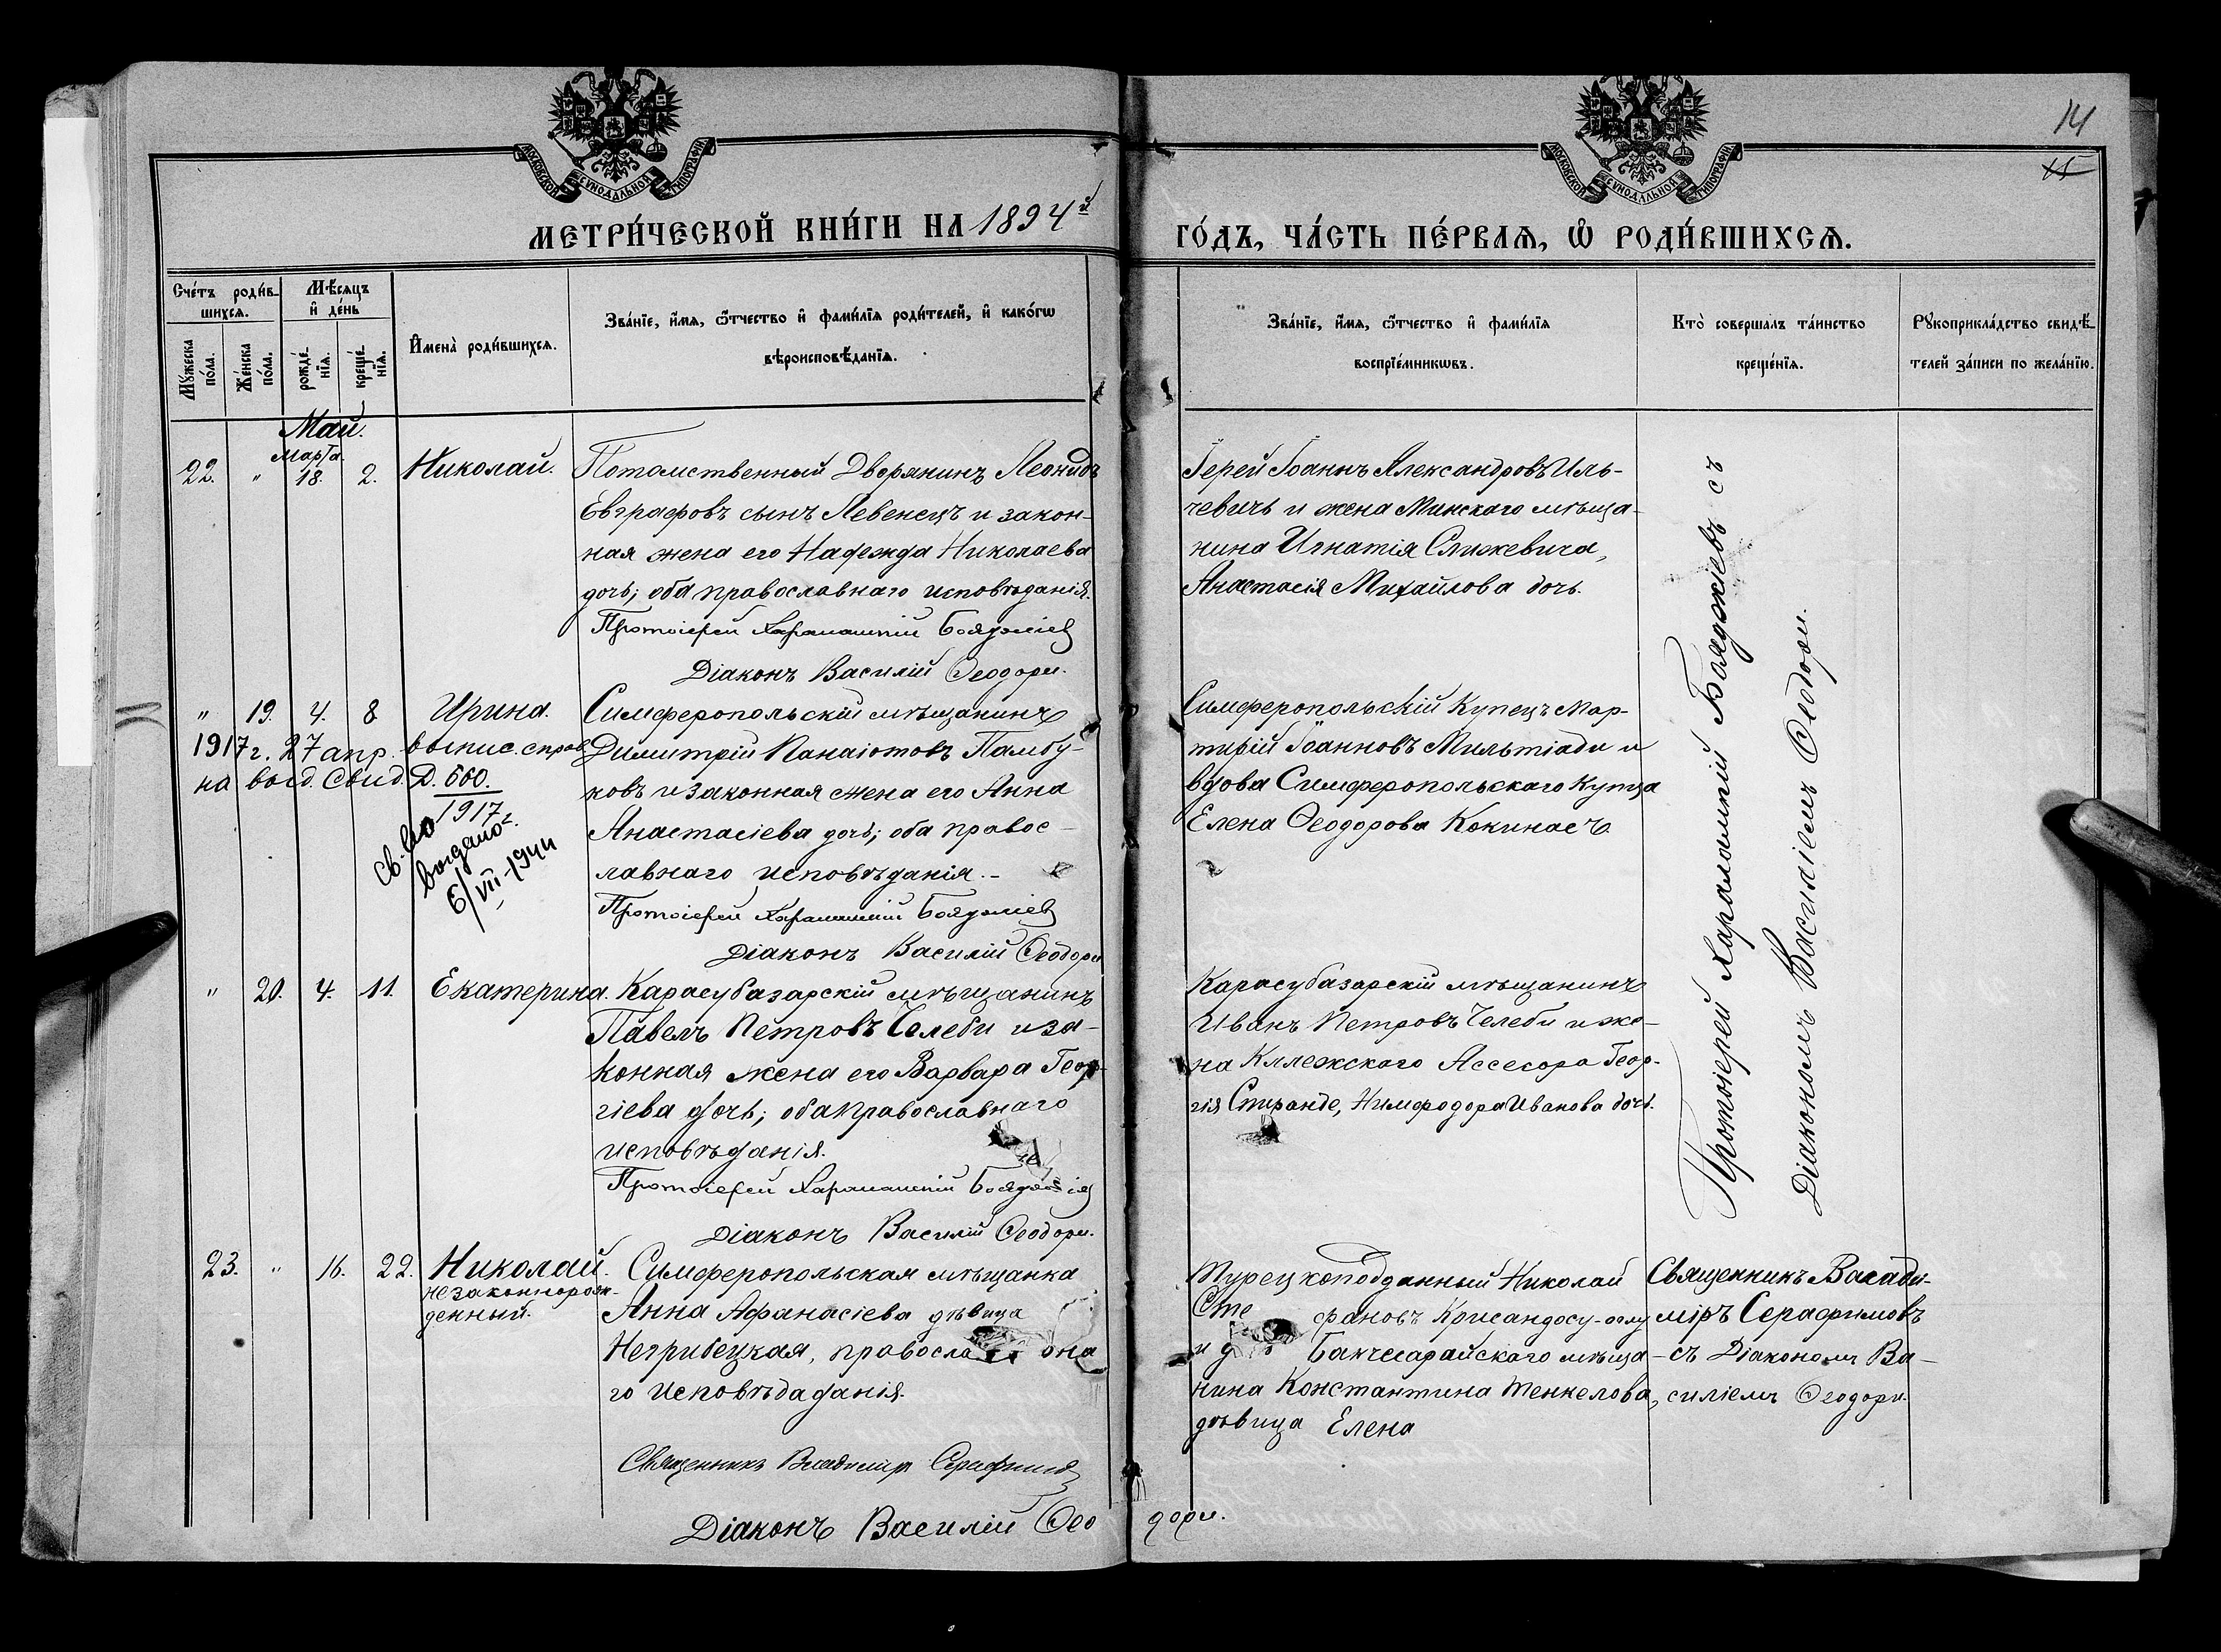 14
15
МОСКОВСКОЙ СѴНОДАЛЬНОЙ ТИПОГРАФІИ
МОСКОВСКОЙ СѴНОДАЛЬНОЙ ТИПОГРАФІИ
МЕТРИ́ЧЕСКОЙ КНИ́ГИ НА 1894й
ГО́ДЪ, ЧА́СТЬ ПЕ́РВАѦ, Ѡ҆ РОДИ́ВШИХСѦ.
Сче́тъ роди́в-
шихсѧ.
Мꙋ́жеска по́ла.
Же́нска по́ла.
Мѣ́сѧцъ
и҆ де́нь
рожде́нїѧ.
креще́нїѧ.
И҆мена̀ роди́вшихсѧ.
Зва́нїе, и҆́мѧ, ѻ҆́тчество и҆ фами́лїѧ роди́телей, и҆ како́гѡ
вѣроисповѣ́данїѧ.
Зва́нїе, и҆́мѧ, ѻ҆́тчество и҆ фами́лїѧ
воспрїе́мникѡвъ.
Кто̀ соверша́лъ та́инство
креще́нїѧ.
Рꙋкоприкла́дство свидѣ́-
телей за́писи по жела́нїю.
Май.
Марта
22. " 18. 2. Николай.
Потомственный Дворянинъ Леонидъ
Евграфовъ сынъ Левенецъ и закон-
ная жена его Надежда Николаева
дочь; оба православнаго исповѣданія.
Протоіерей Харалампій Бояджіев
Діаконъ Василій Ѳеодори.
Іерей Іоаннъ Александровъ Иль-
чевичъ и жена Минскаго мѣща-
нина Игнатія Слижевича,
Анастасія Михайлова дочь.
Протоіерей Харалампій Бояджіевъ съ
Діакономъ Василіемъ Ѳеодори.
" 19. 4. 8 Ирина.
1917 г. 27 апр. выпис. справ
на выд. Свид. Д. 660.
1917 г.
Св-во
выдано
6/VII-1944
Симферопольскій мѣщанинъ
Димитрій Панаіотовъ Памбу-
ковъ и законная жена его Анна
Анастасіева дочь; оба правос-
лавнаго исповѣданія.-
Протоіерей Харалампій Бояджіев
Діаконъ Василій Ѳеодори
Симферопольскій Купецъ Мар-
тирій Іоанновъ Мильтіади и
вдова Симферопольскаго Купца
Елена Ѳеодорова Кокинасъ
" 20. 4. 11. Екатерина.
Карасубазарскій мѣщанинъ
Павелъ Петровъ Челеби и за-
конная жена его Варвара Геор-
гіева дочь; оба православнаго
исповѣданія.
Протоіерей Харалампій Бояджіев
Діаконъ Василій Ѳеодори.
Карасубазарскій мѣщанинъ
Иванъ Петровъ Челеби и же-
на Кллежскаго Ассесора Геор-
гія Спиранде, Нимфодора Иванова дочь.
23. " 16. 22. Николай.
незаконнорож-
денный.
Симферопольская мѣщанка
Анна Афанасіева дѣвица
Негрибецкая, правосла
го исповѣдаданія.
Священникъ Владимір Серафимов
Діаконъ Василій Ѳеодори.
Турецкоподданный Николай
Стефановъ Крисандосу-оглу
и Бахчесарайскаго мѣща-
нина Константина Тенкелова,
дѣвица Елена
Священникъ Валади-
міръ Серафимовъ
съ Діакономъ Ва-
силіемъ Ѳеодори.